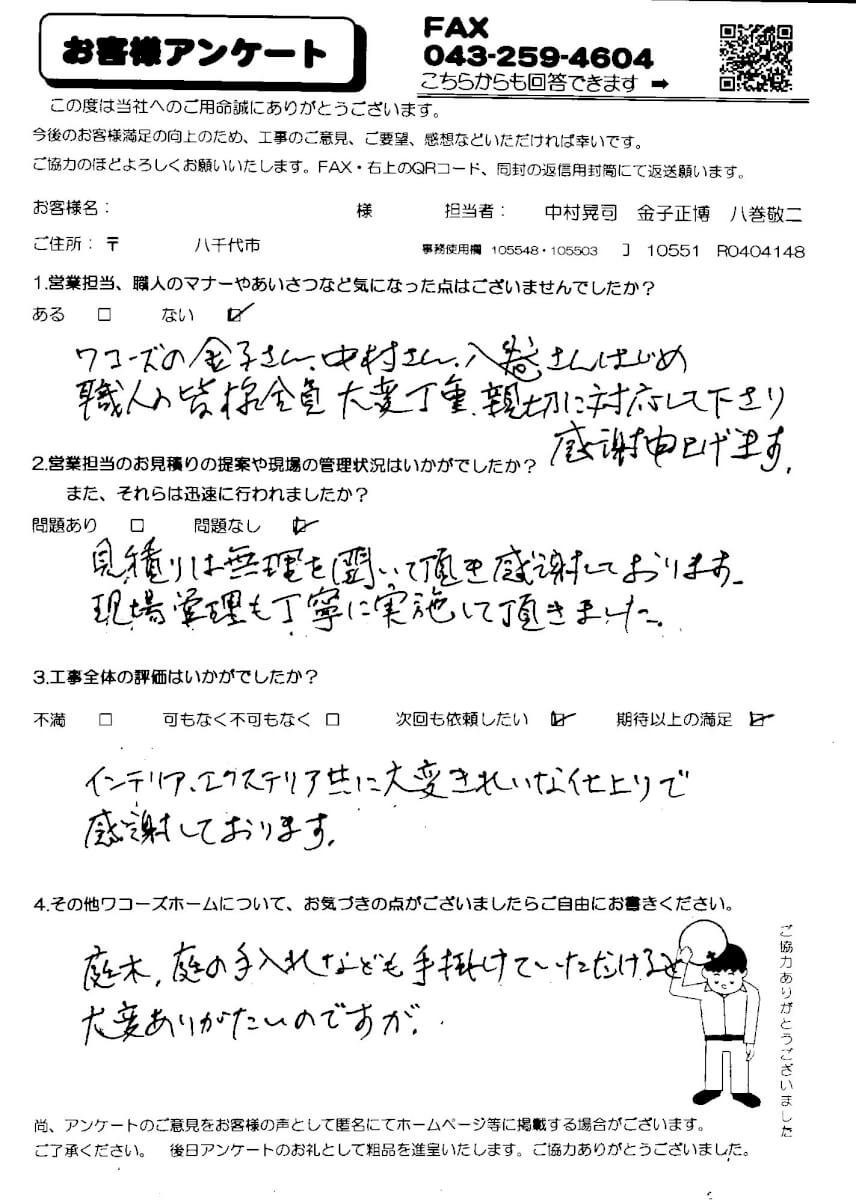 お客様アンケート
FAX
043-259-4604
こちらからも回答できます ➡
この度は当社へのご用命誠にありがとうございます。
今後のお客様満足の向上のため、工事のご意見、ご要望、感想などいただければ幸いです。
ご協力のほどよろしくお願いいたします。FAX・右上のQRコード、同封の返信用封筒にて返送願います。
お客様名： 様 担当者： 中村晃司 金子正博 八巻敬二
ご住所：〒 八千代市 事務使用欄 105548・105503 】 10551 R0404148
1.営業担当、職人のマナーやあいさつなど気になった点はございませんでしたか？
ある □ ない ☑
ワコーズの金子さん、中村さん、八巻さんはじめ
職人の皆様全員大変丁重、親切に対応して下さり
感謝申上げます。
2.営業担当のお見積りの提案や現場の管理状況はいかがでしたか？
また、それらは迅速に行われましたか？
問題あり □ 問題なし ☑
見積りは無理を聞いて頂き感謝しております。
現場管理も丁寧に実施して頂きました。
3.工事全体の評価はいかがでしたか？
不満 □ 可もなく不可もなく □ 次回も依頼したい ☑ 期待以上の満足 ☑
インテリア、エクステリア共に大変きれいな仕上りで
感謝しております。
4.その他ワコーズホームについて、お気づきの点がございましたらご自由にお書きください。
庭木，庭の手入れなども手掛けていただけると
大変ありがたいのですが．
ご協力ありがとうございました
尚、アンケートのご意見をお客様の声として匿名にてホームページ等に掲載する場合がございます。
ご了承ください。 後日アンケートのお礼として粗品を進呈いたします。ご協力ありがとうございました。